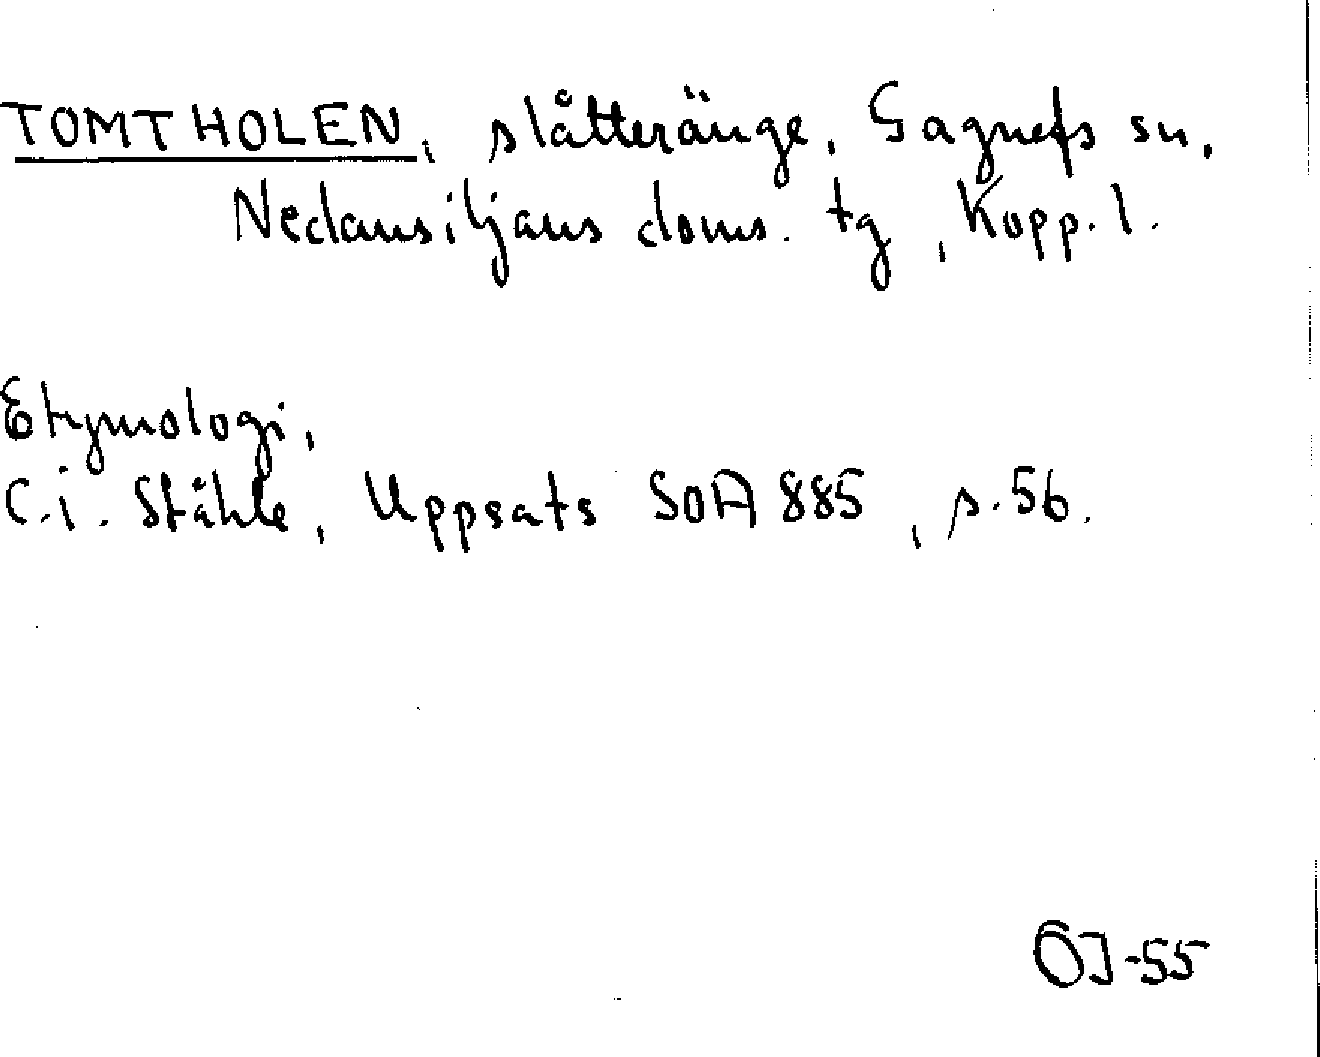 TOMTHOLEN, slåtteränge, Gagnefs sn,
Nedansiljans doms. tg, Kopp. l.
Etymologi,
C.I. Ståhle, Uppsats SOA 885, s. 56.
ÖJ-55